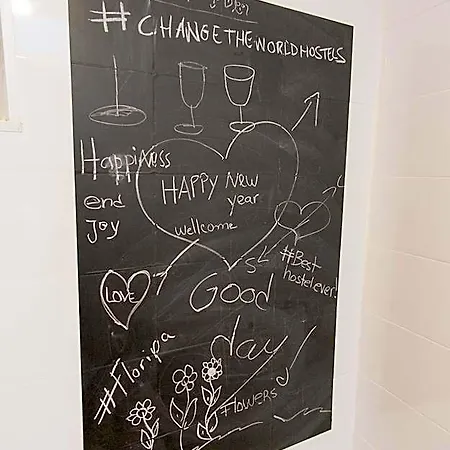 #CHANGETHEWORLDHOSTELS
Happiness
end
Joy
HAPPY New
year
wellcome
#Best
hostel ever!
LOVE
Good
day
#Floripa
FLOWERS